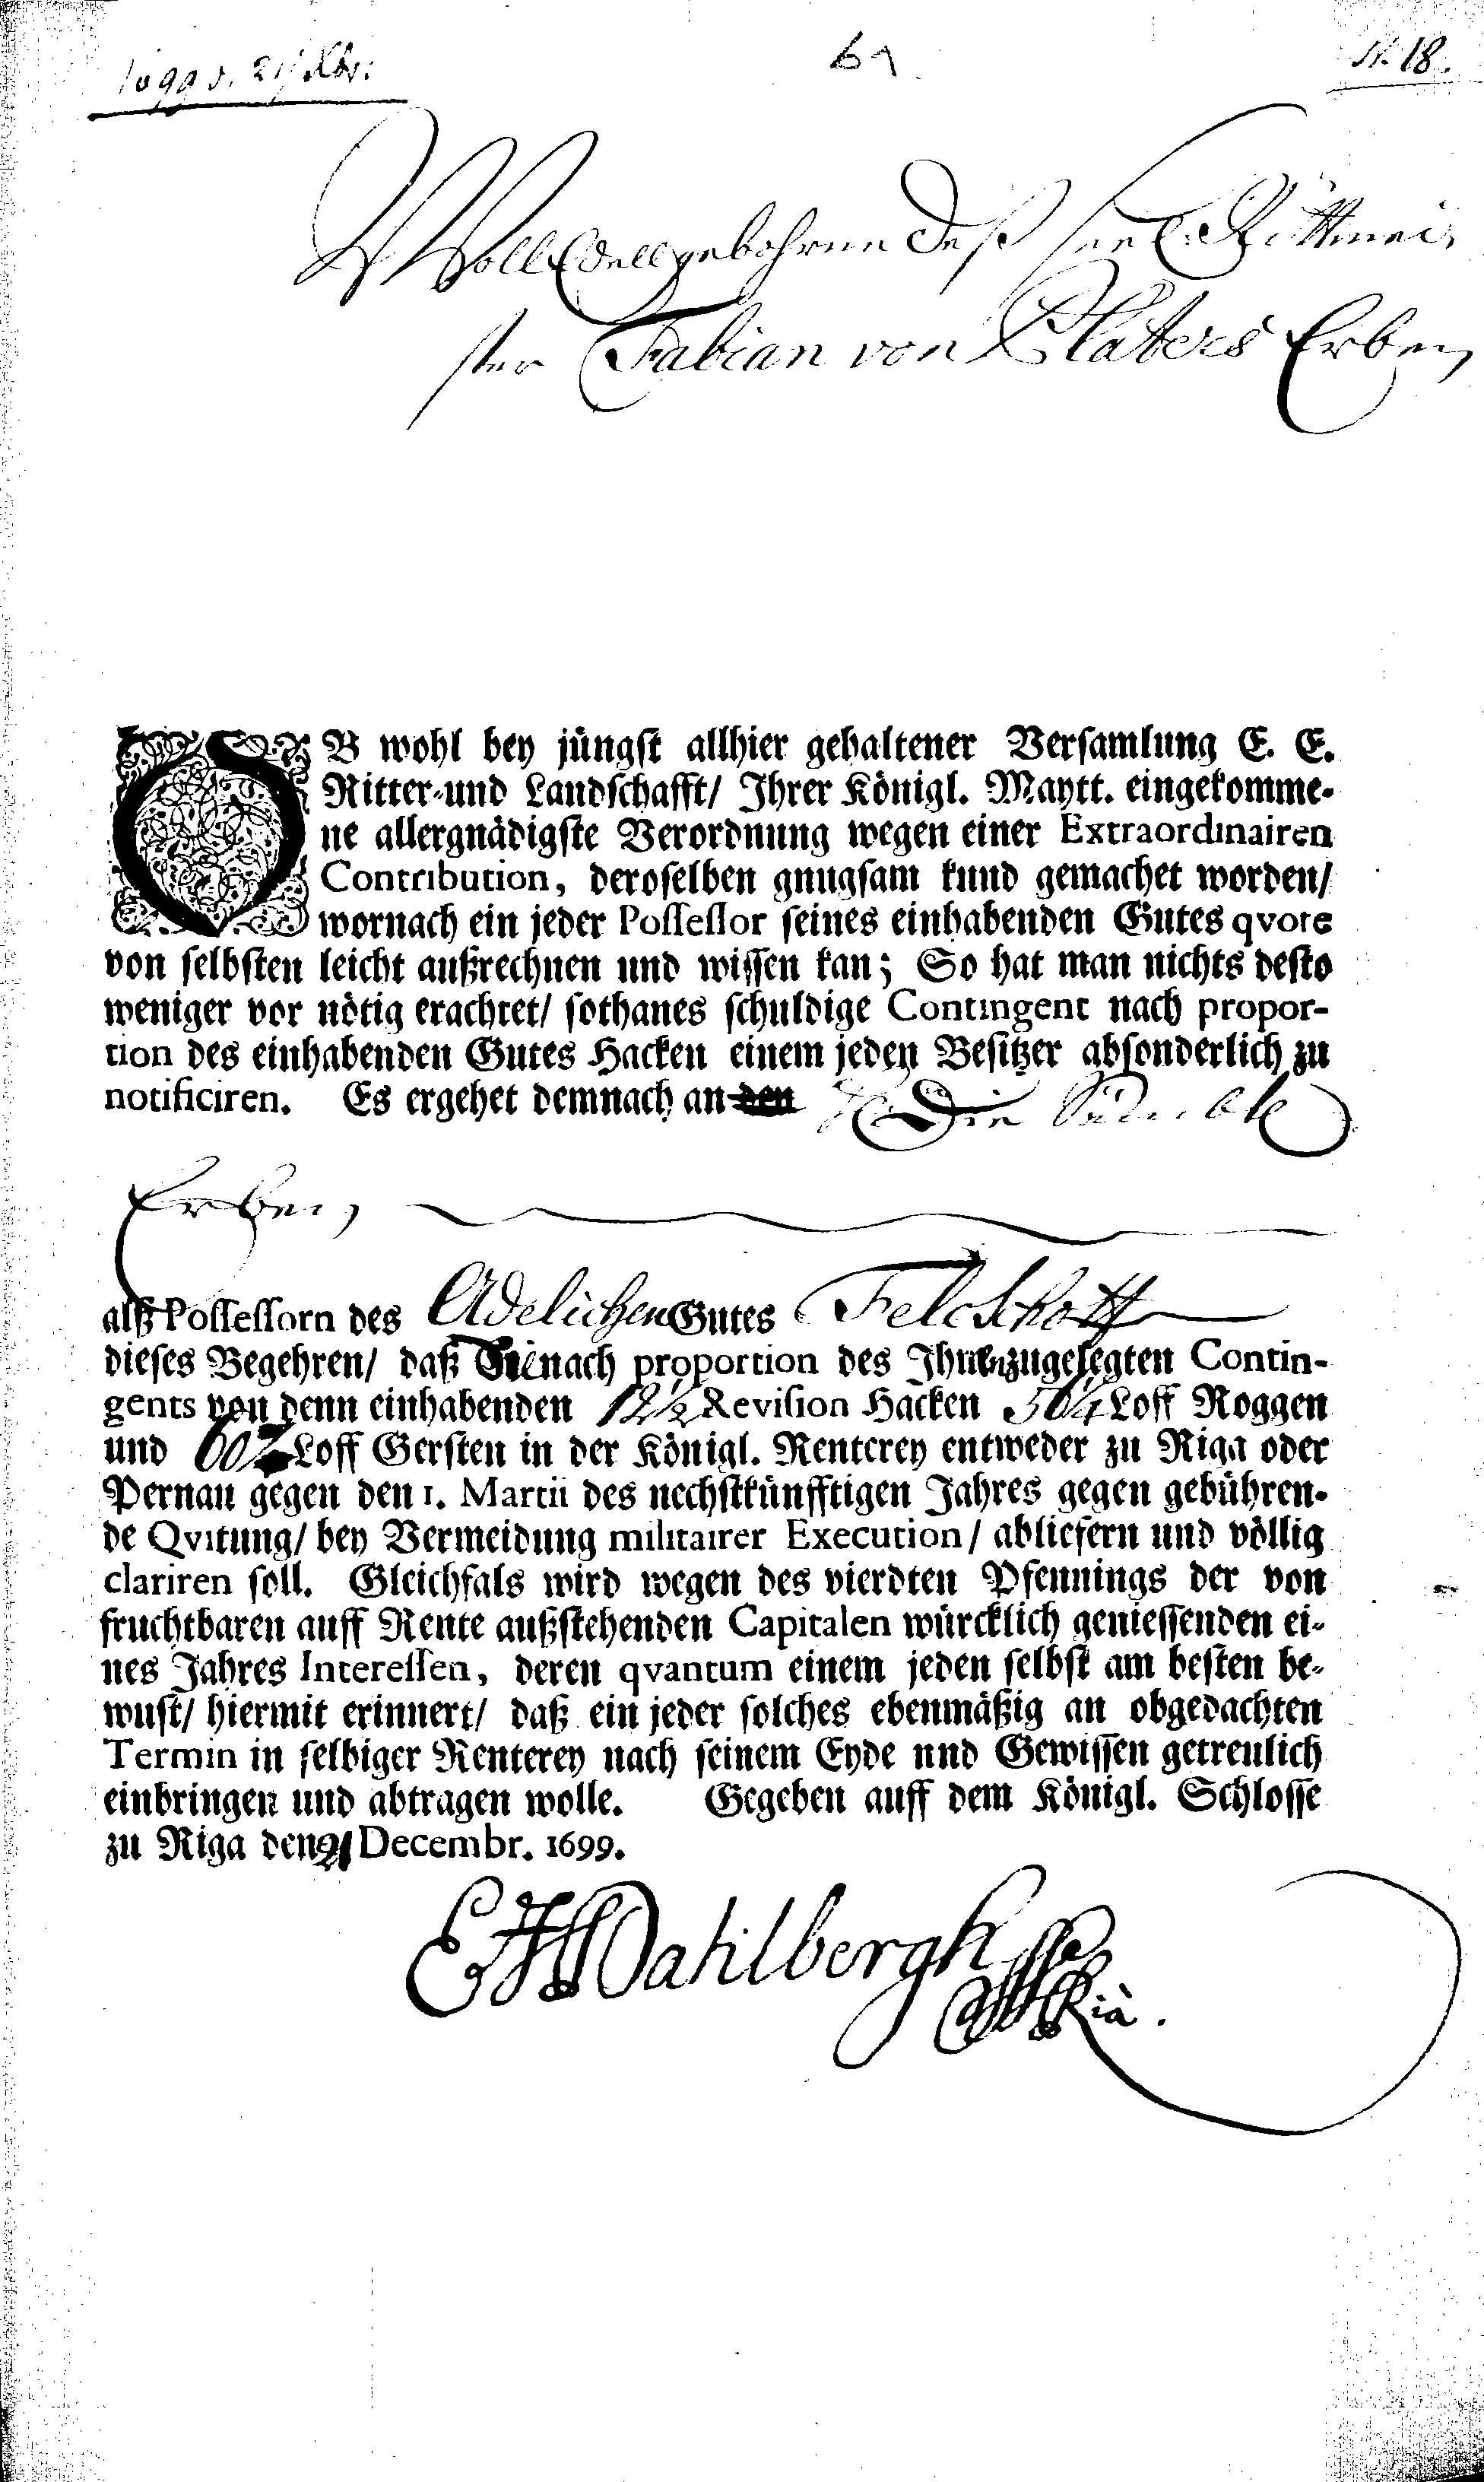 1699 d. 21 Xbr:
69
N. 18.
Woll Edellgebohrne Deß seel. Rittmei-
ster Fabian von Platers Erben
OB wohl bey jüngst allhier gehaltener Versamlung E. E.
Ritter-und Landschafft/ Ihrer Königl. Maytt. eingekomme-
ne allergnädigste Verordnung wegen einer Extraordinairen
Contribution, deroselben gnugsam kund gemachet worden/
wornach ein jeder Possessor seines einhabenden Gutes qvote
von selbsten leicht außrechnen und wissen kan; So hat man nichts desto
weniger vor nötig erachtet/ sothanes schuldige Contingent nach propor-
tion des einhabenden Gutes Hacken einem jeden Besitzer absonderlich zu
notificiren. Es ergehet demnach an den Die
Erben,
alß Possessorn des Adelichen Gutes Felckhoff
dieses Begehren/ daß Sie nach proportion des Ihnen zugelegten Contin-
gents von denn einhabenden 12½ Revision Hacken Loff Roggen
und Loff Gersten in der Königl. Renterey entweder zu Riga oder
Pernau gegen den 1. Martii des nechstkünfftigen Jahres gegen gebühren-
de Qvitung/ bey Vermeidung militairer Execution/ abliefern und völlig
clariren soll. Gleichfals wird wegen des vierdten Pfennings der von
fruchtbaren auff Rente außstehenden Capitalen würcklich geniessenden ei-
nes Jahres Interessen, deren qvantum einem jeden selbst am besten be-
wust/ hiermit erinnert/ daß ein jeder solches ebenmäßig an obgedachten
Termin in selbiger Renterey nach seinem Eyde und Gewissen getreulich
einbringen und abtragen wolle. Gegeben auff dem Königl. Schlosse
zu Riga den 21 Decembr. 1699.
E Dahlbergh